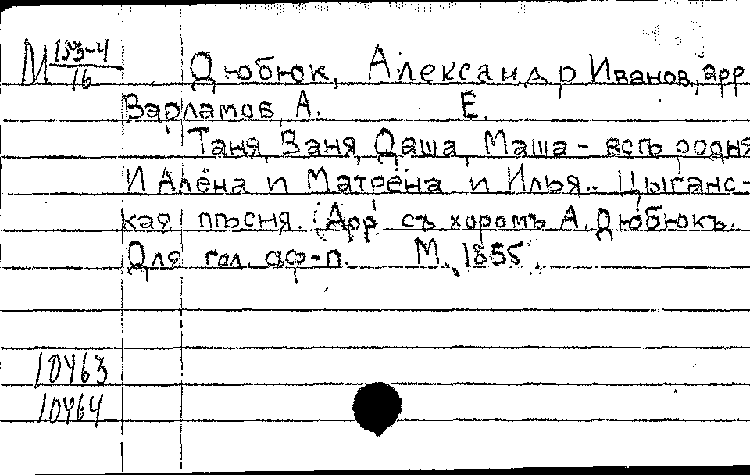 М 133-4/16 Дюбюк, Александр Иванов, арр
Варламов, А. Е.
Таня, Ваня, Даша, Маша - всѣ родня
И Алёна и Матрёна и Илья.. Цыганс-
кая пѣсня. (Арр. съ хоромъ А. Дюбюкъ.
Для гол. с ф-п. М., 1855.
10463
10464